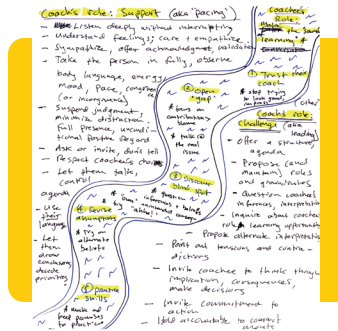 Coach's Role: Support (aka "pacing")
- Listen deeply without interrupting
- understand feelings; care + empathize
- Sympathize, offer acknowledgment, validate
- Take the person in fully, observe
body language, energy,
mood, pace, congruence
(or incongruence)
- Suspend judgment,
minimize distraction
- Full presence, uncondi-
tional positive regard
- Ask or invite, don't tell
- Respect coachee's choices
- Let them talk,
control
agenda
- Use
their
language
- Let
them
draw
conclusions,
decide
priorities
Coachee's
Role:
learning +
① Trust the coach
* stop trying
to look good,
② Open
"gap"
* focus on
contributions
* talk @
the real
issue
③ Discover
blind spot
* question
inferences + beliefs
* own
try "aha!"
④ Revise
assumptions
* Try on
alternate
beliefs
⑤ Practice
skills
* make and
keep promises
to practice
Coach's role:
Challenge (aka
leading)
- Offer a structure,
agenda
- Propose (and
maintain) roles
and groundrules
- Question coachee's
inferences, interpretations
- Inquire about coachee's
role, learning opportunity
- Propose alternate interpretations
- Point out tensions and contra-
dictions
- Invite coachee to think through
implications, consequences,
make decisions
- Invite commitment to
action
- Hold accountable to commit
ments